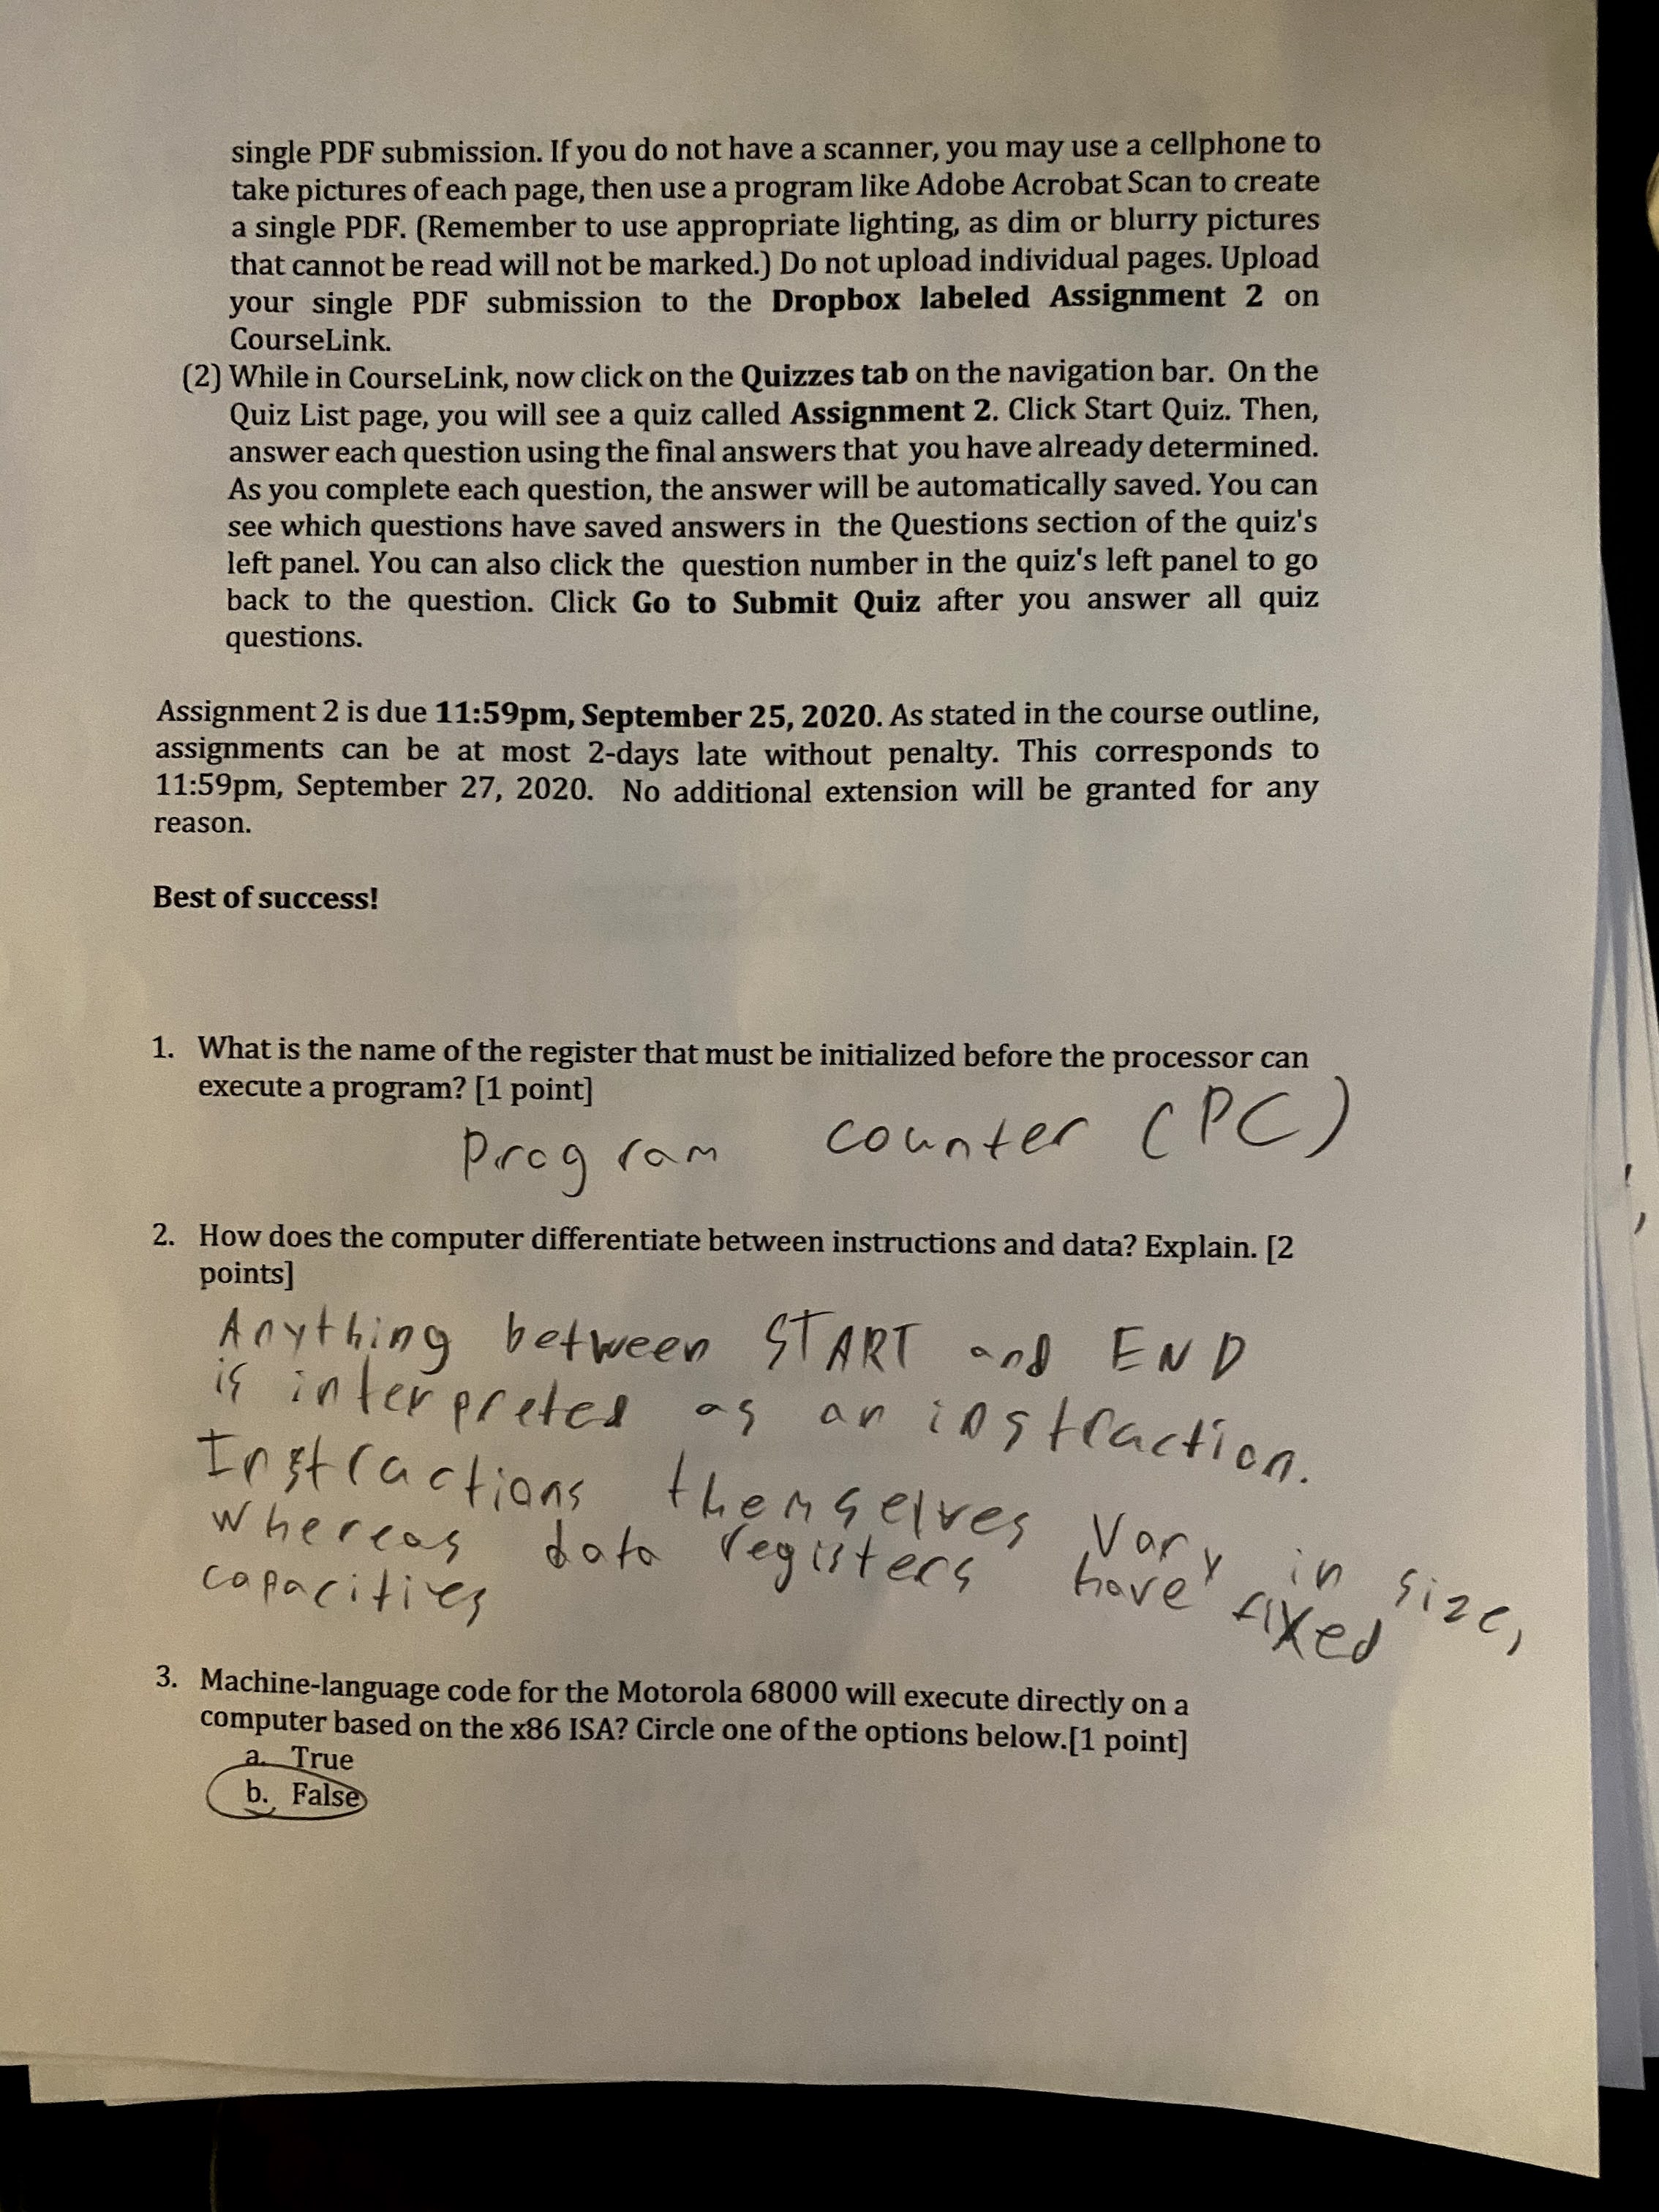 single PDF submission. If you do not have a scanner, you may use a cellphone to
take pictures of each page, then use a program like Adobe Acrobat Scan to create
a single PDF. (Remember to use appropriate lighting, as dim or blurry pictures
that cannot be read will not be marked.) Do not upload individual pages. Upload
your single PDF submission to the Dropbox labeled Assignment 2 on
CourseLink.
(2) While in CourseLink, now click on the Quizzes tab on the navigation bar. On the
Quiz List page, you will see a quiz called Assignment 2. Click Start Quiz. Then,
answer each question using the final answers that you have already determined.
As you complete each question, the answer will be automatically saved. You can
see which questions have saved answers in the Questions section of the quiz's
left panel. You can also click the question number in the quiz's left panel to go
back to the question. Click Go to Submit Quiz after you answer all quiz
questions.
Assignment 2 is due 11:59pm, September 25, 2020. As stated in the course outline,
assignments can be at most 2-days late without penalty. This corresponds to
11:59pm, September 27, 2020. No additional extension will be granted for any
reason.
Best of success!
1. What is the name of the register that must be initialized before the processor can
execute a program? [1 point]
Program counter (PC)
2. How does the computer differentiate between instructions and data? Explain. [2
points]
Anything between START and END
is interpreted as an instruction.
Instructions themselves vary in size,
whereas data registers have fixed
capacities
3. Machine-language code for the Motorola 68000 will execute directly on a
computer based on the x86 ISA? Circle one of the options below.[1 point]
a. True
b. False